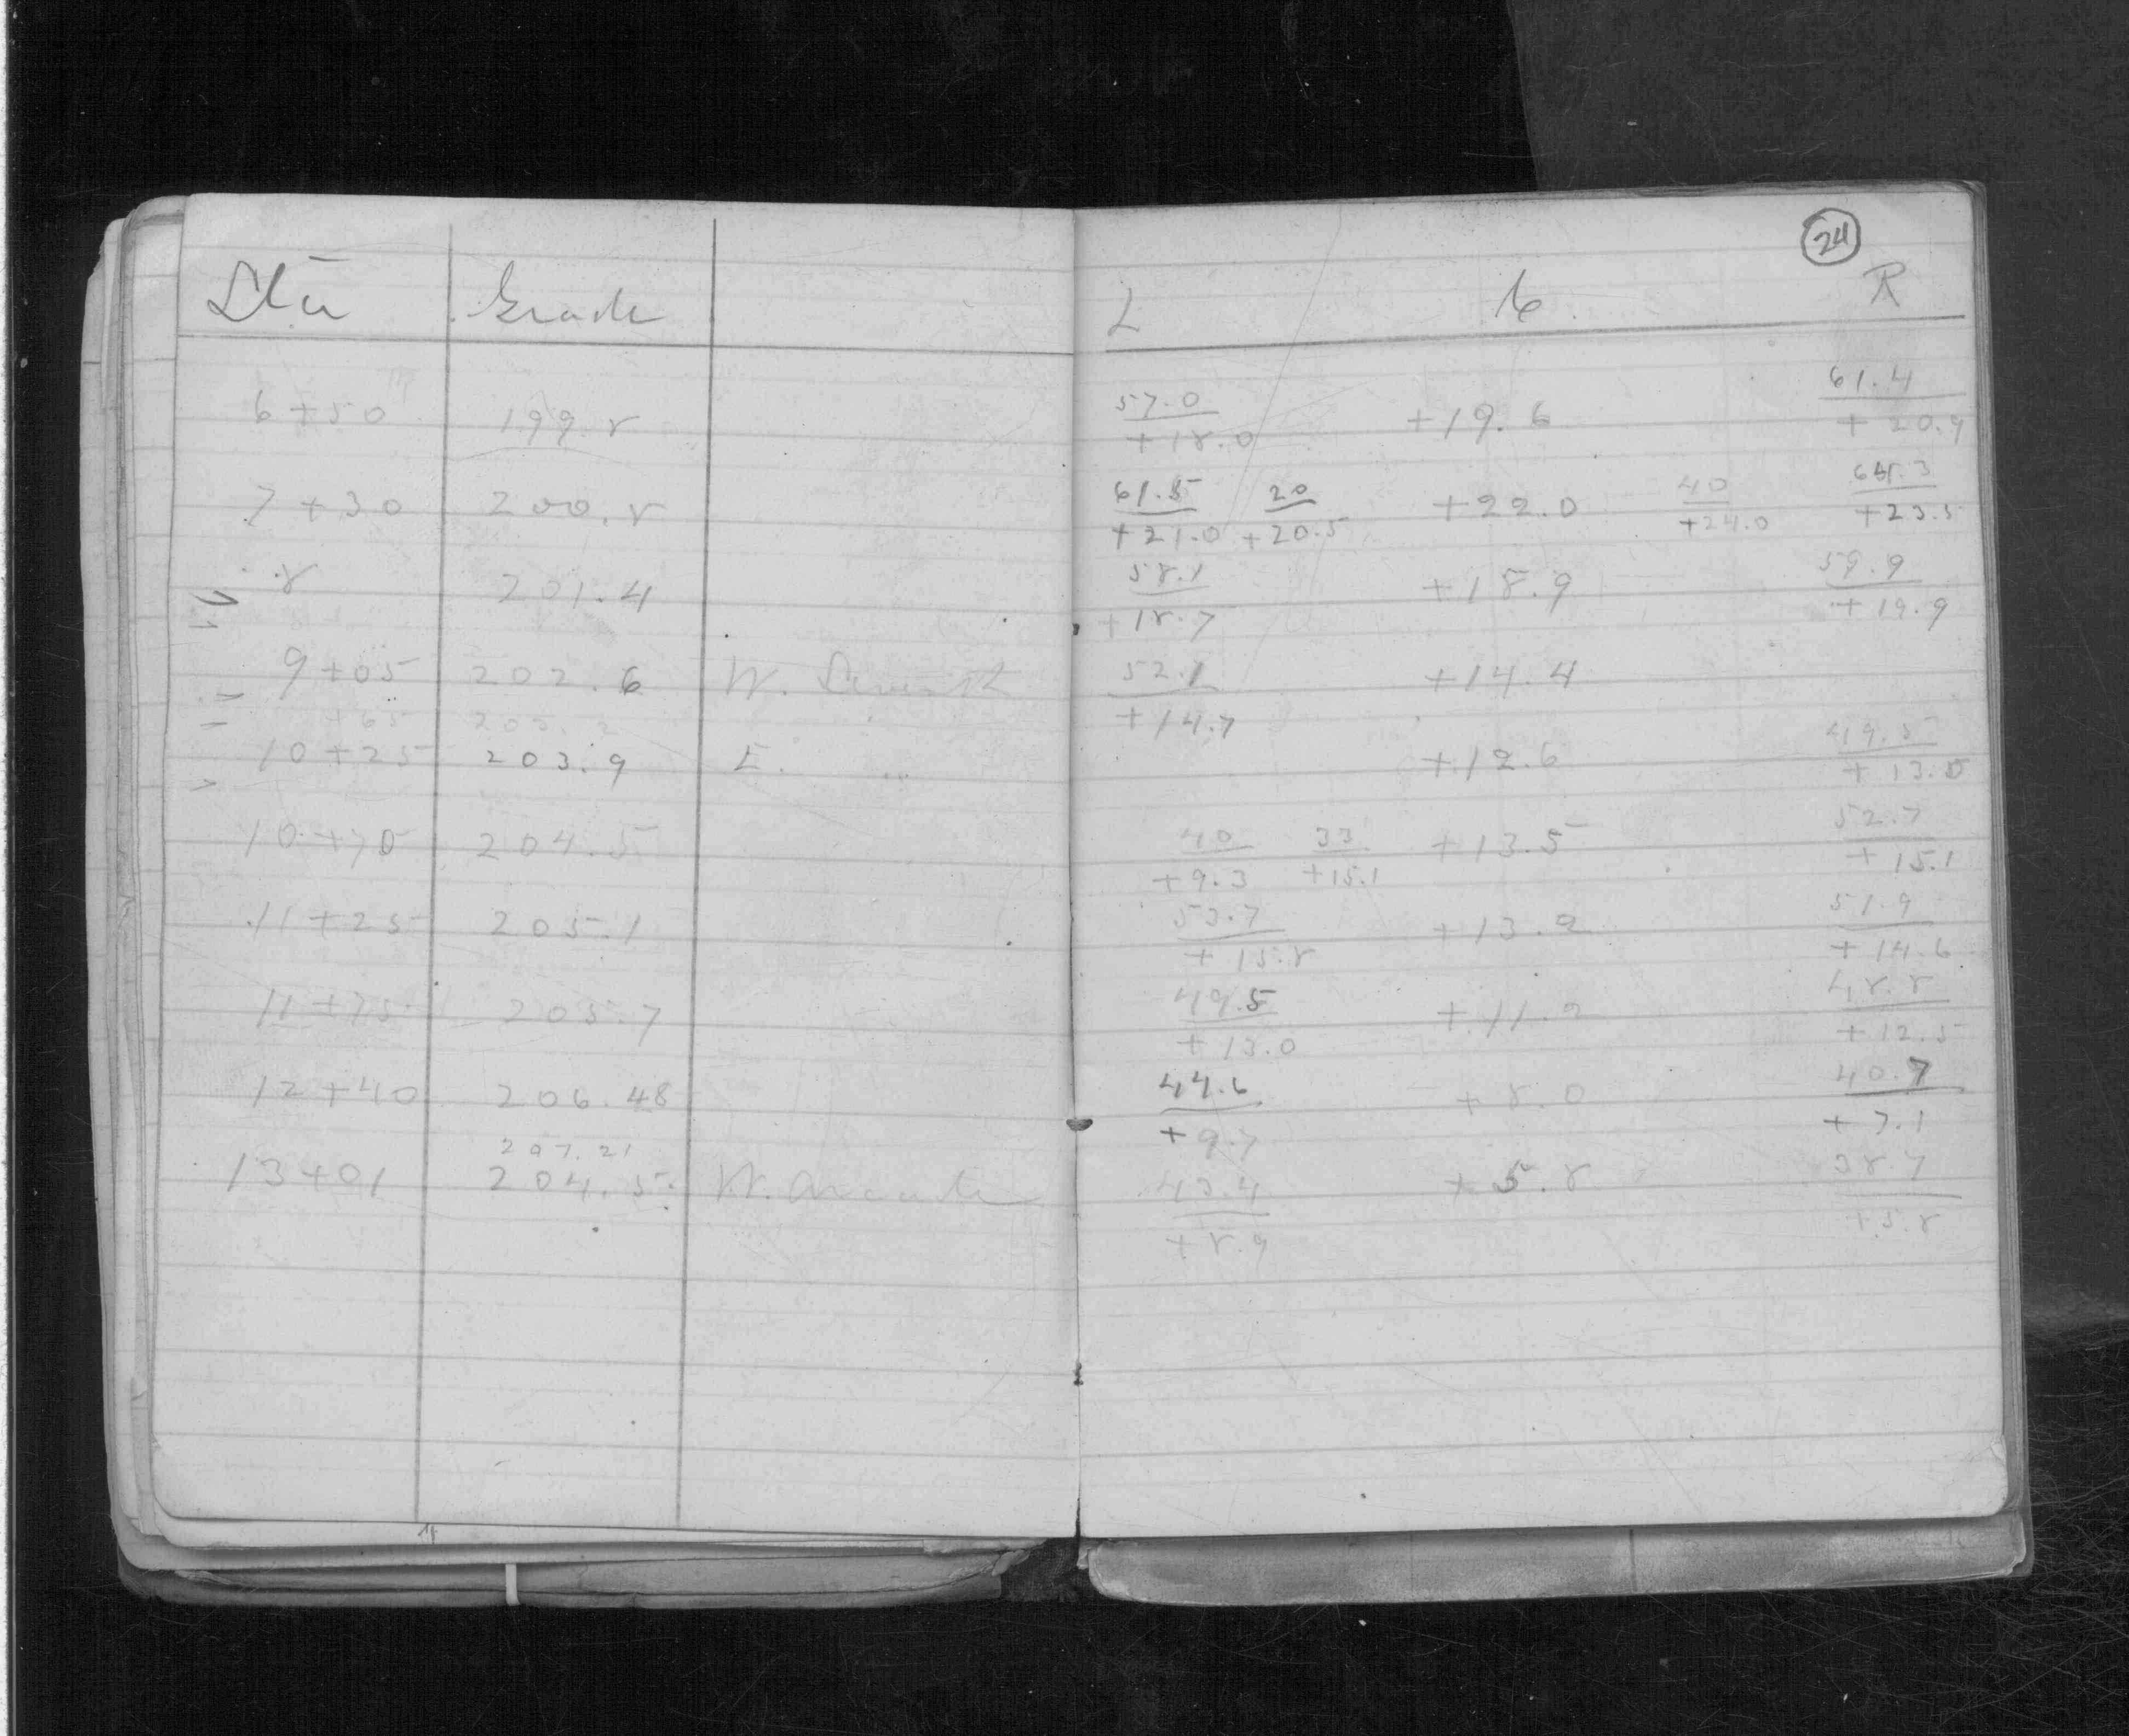 24
Sta Grade L C R
6+50 199.8 57.0/+18.0 +19.6 61.4/+20.9
7+30 200.8 61.5/+21.0 20/+20.5 +22.0 40/+24.0 64.3/+23.5
8 201.4 58.1/+18.7 +18.9 59.9/+19.9
9+05 202.6 W. Seventh 52.1/+14.7 +14.4
+65 203.2
10+25 203.9 E. " +12.6 49.5/+13.0
10+70 204.5 40/+9.3 33/+15.1 +13.5 52.7/+15.1
11+25 205.1 53.7/+15.8 +13.9 51.9/+14.6
11+75 205.7 49.5/+13.0 +11.2 48.8/+12.5
12+40 206.48 44.6/+9.7 +8.0 40.7/+7.1
207.21
13+01 204.5 W. 43.4/+8.9 +5.8 38.7/+5.8